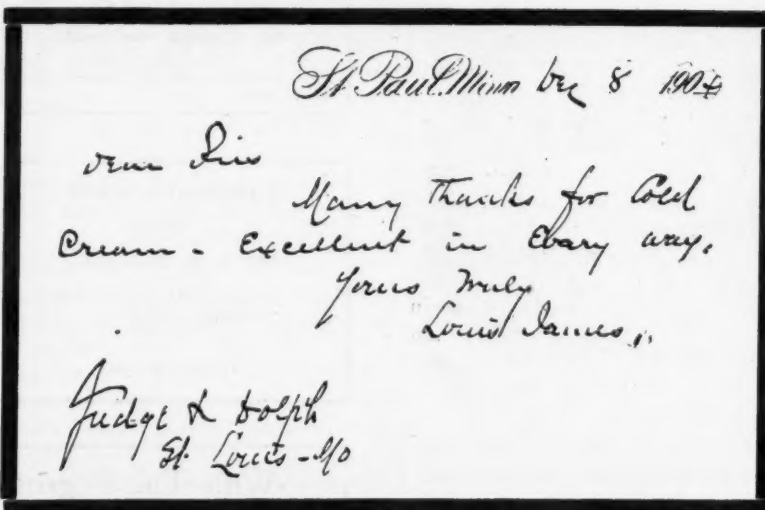 St Paul, Minn Dec 8 1904
Dear Sirs
Many Thanks for Cold
Cream - Excellent in Every way.
Yours Truly
Louis James
Judge & Dolph
St. Louis - Mo